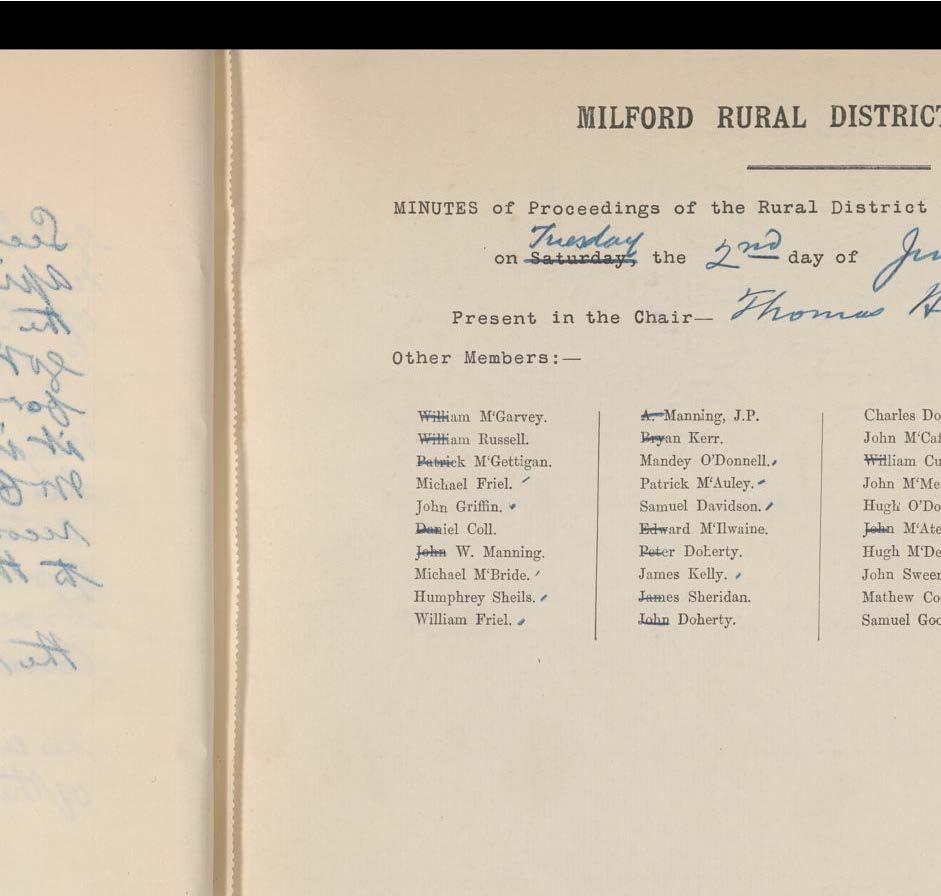 MILFORD RURAL DISTRICT
MINUTES of Proceedings of the Rural District
Tuesday
on Saturday, the 2nd day of
Present in the Chair— Thomas
Other Members:—
William M'Garvey.
William Russell.
Patrick M'Gettigan.
Michael Friel.
John Griffin.
Daniel Coll.
John W. Manning.
Michael M'Bride.
Humphrey Sheils.
William Friel.
A. Manning, J.P.
Bryan Kerr.
Mandey O'Donnell.
Patrick M'Auley.
Samuel Davidson.
Edward M'Ilwaine.
Peter Doherty.
James Kelly.
James Sheridan.
John Doherty.
Charles Do
John M'Caf
William Cu
John M'Me
Hugh O'Do
John M'Ate
Hugh M'De
John Sween
Mathew Co
Samuel Goo